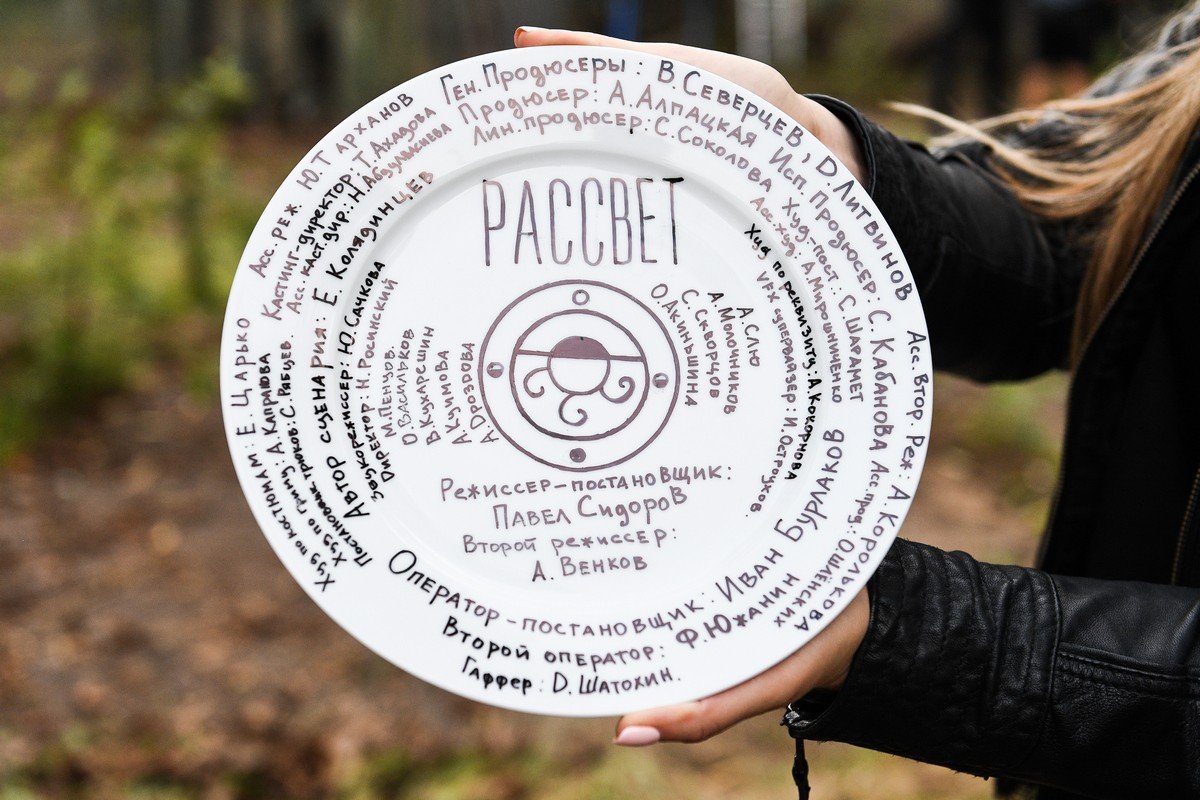 РАССВЕТ
Режиссер-постановщик:
Павел Сидоров
Второй режиссер:
А. Венков
М. Пенцов
О. Васильков
В. Кухарешин
А. Куимова
А. Дроздова
О. Акиньшина
С. Скворцов
А. Молочников
А. Слю
Ген. Продюсеры: В Северцев, Д. Литвинов
Продюсер: А. Алпацкая Исп. Продюсер: С. Кабанова
Лин. продюсер: С. Соколова Худ.-пост. С. Шарамет
Асс. худ: А. Мирошниченко
Худ по реквизиту: А Кокорнова
VFX супервайзер: И Остроухов.
Асс. Втор. Реж: А. Королькова
Асс. прод: О. Шлёнских
Асс. реж Ю. Тарханов
Кастинг-директор: Т. Ахадова
Асс. каст. дир: Н. Абдулькина
Автор сценария: Е. Колядинцев
Звукорежиссер: Ю. Сачкова
Директор: Н. Росинский
Худ по костюмам: Е. Царько
Худ по гриму: А. Капранова
Постановщик трюков: С. Рябцев
Оператор-постановщик: Иван Бурлаков
Второй оператор: Ф. Южанин
Гаффер: D. Шатохин.